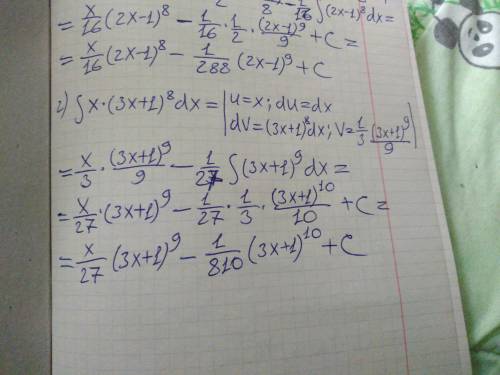 = x/16 (2x-1)^8 - 1/16 · 1/2 · (2x-1)^9/9 + C =
= x/16 (2x-1)^8 - 1/288 (2x-1)^9 + C
г) ∫x·(3x+1)^8 dx = | u=x; du=dx
dV=(3x+1)^8 dx; V=1/3 (3x+1)^9/9 |
= x/3 · (3x+1)^9/9 - 1/27 ∫(3x+1)^9 dx =
= x/27 · (3x+1)^9 - 1/27 · 1/3 · (3x+1)^10/10 + C =
= x/27 (3x+1)^9 - 1/810 (3x+1)^10 + C